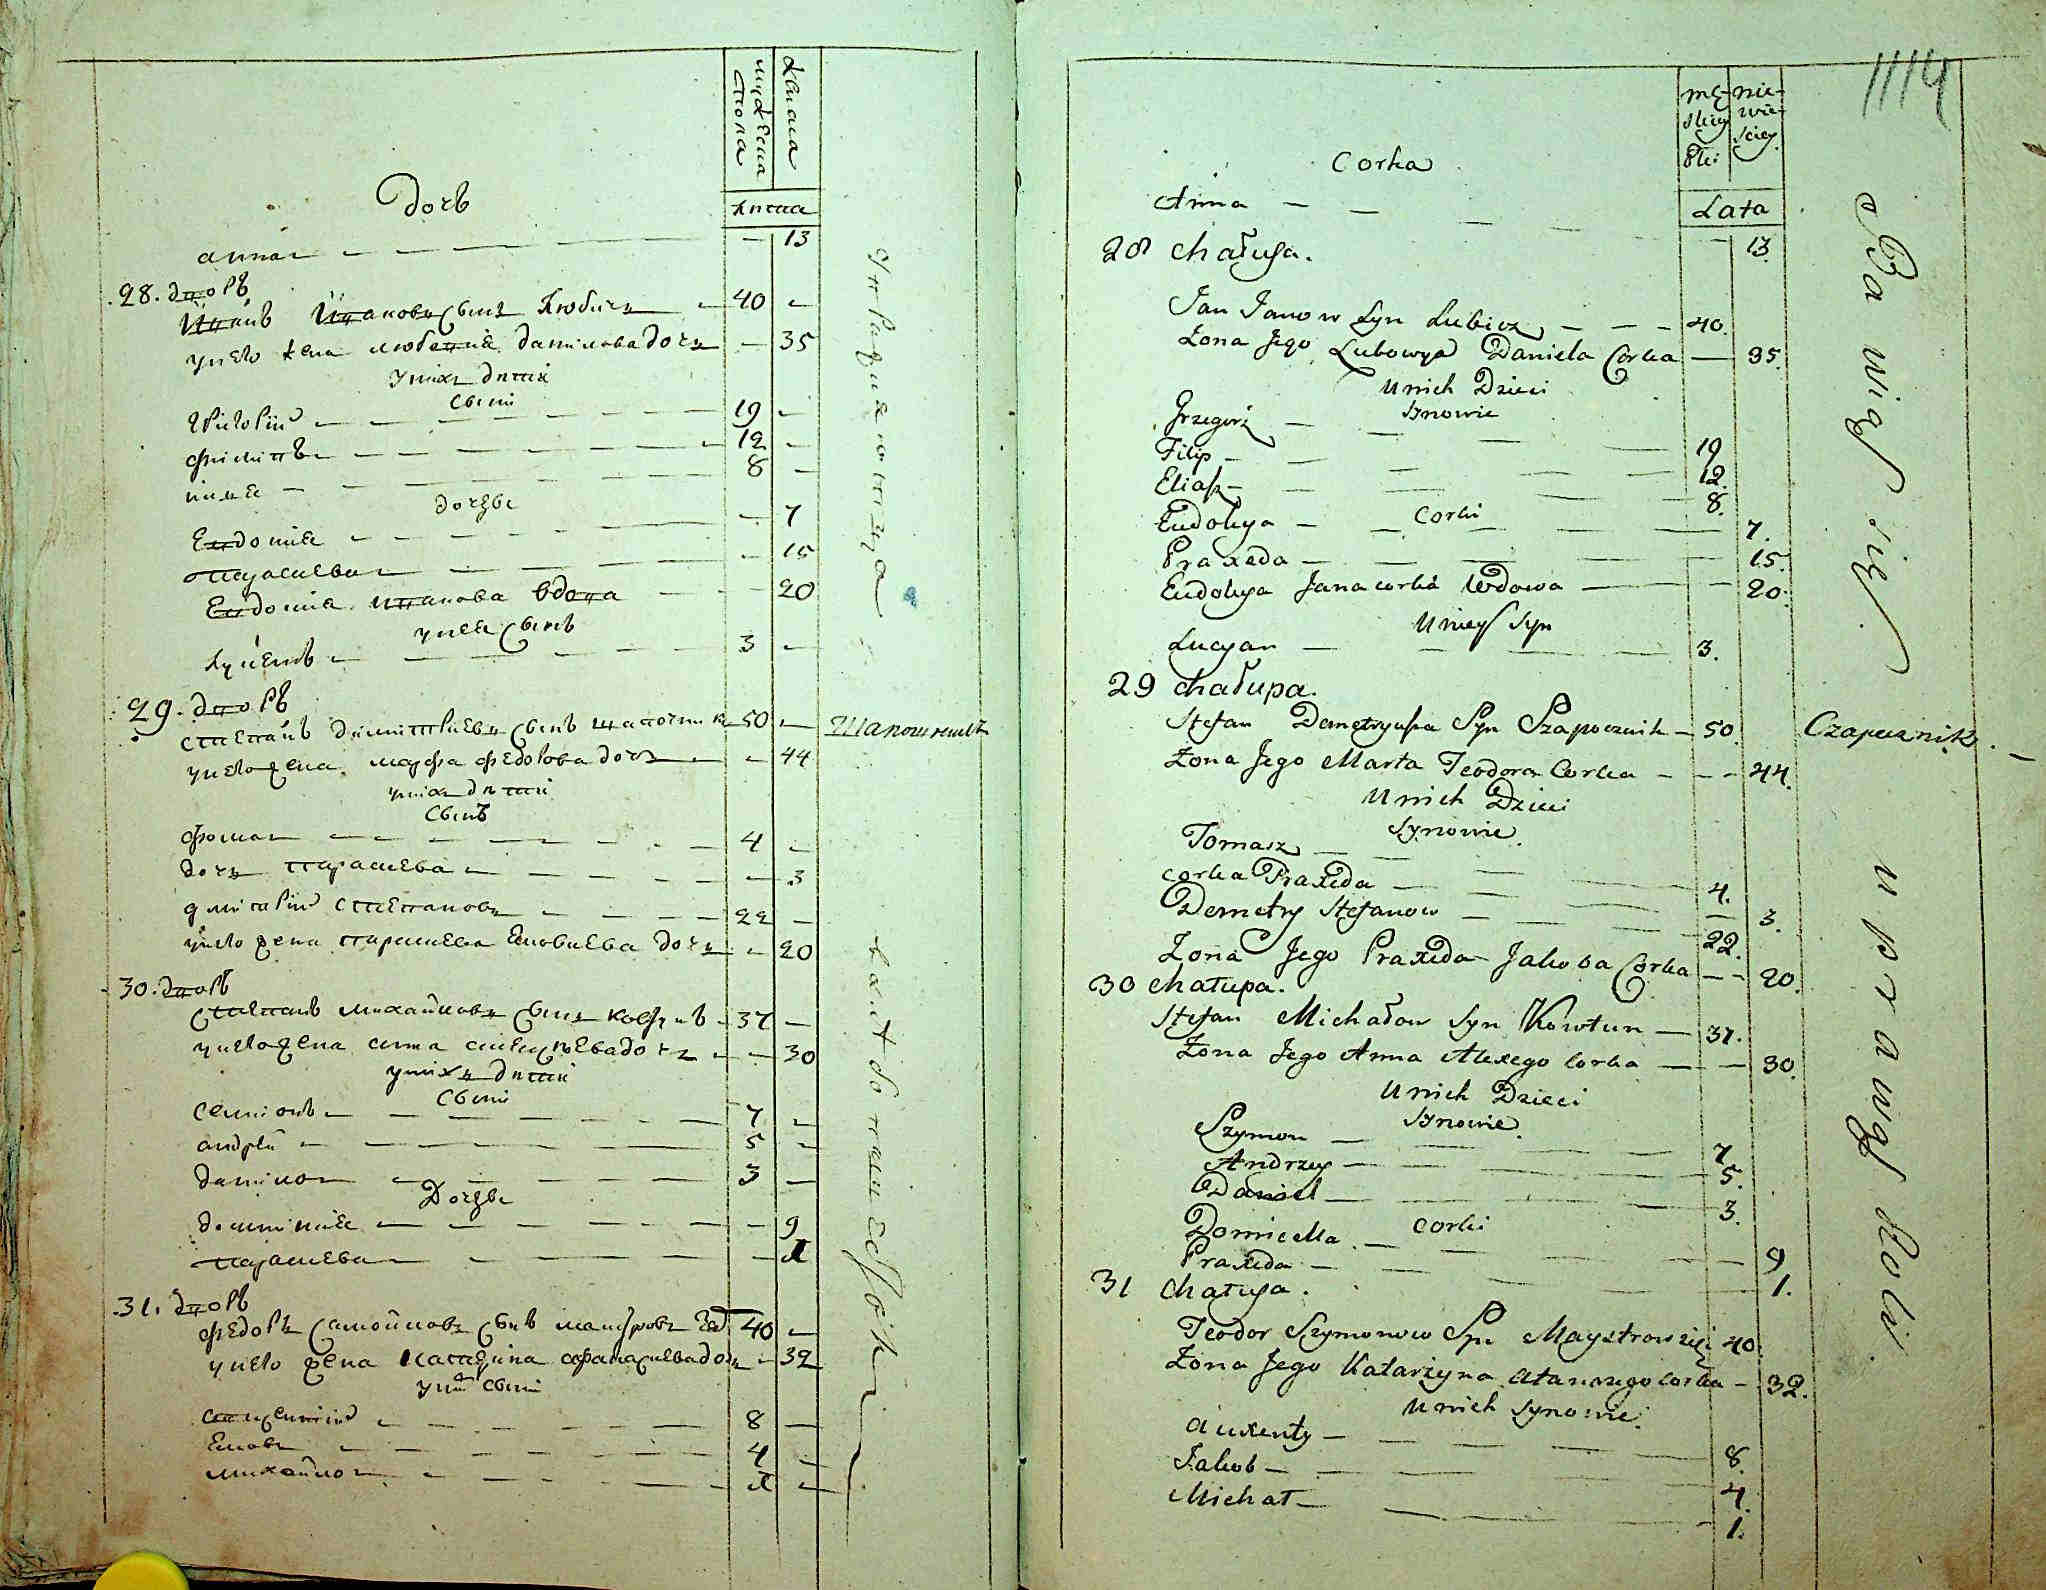 мужеска
пола
женска
Дочь
лита
анна — 13
28. дворъ
Иванъ Ивановъ сынъ Любичъ — 40 —
у него жена любовия данилова дочь — 35
у нихъ дитии
сыни
Григорий — 19 —
филипъ — 12 —
илия — 8 —
дочери
Евдокия — 7
параскева — 15
Евдокия иванова вдова — 20
у нее сынъ
Лукиянъ — 3 —
29. дворъ
степанъ димитриевъ сынъ шапочник 50 —
у него жена марфа федорова дочь — 44
у нихъ дитии
сынъ
фома — 4 —
дочь параскева — 3
дмитрий степановъ — 22 —
у него жена параскева яковлева дочь — 20
30. дворъ
степанъ михайловъ сынъ ковтунъ 37 —
у него жена анна алексеева дочь — 30
у нихъ дитии
сыни
семионъ — 7 —
андрей — 5 —
данило — 3 —
Дочери
домникия — 9
параскева — 1
31. дворъ
федоръ самойловъ сынъ 40 —
у него жена катерина афанасиева дочь — 32
у них сыни
авксентий — 8 —
яковъ — 4 —
михайло — 1 —
mę-
skiey
płci
nie-
wie-
sciey
1114
Corka
Lata
Anna — 13.
28 chałupa.
Jan Janow Syn Lubicz — 40.
Żona Jego Lubowya Daniela Corka — 35.
U nich Dzieci
Synowie
Grzegorz — 19
Filip — 12.
Eliasz — 8.
Corki
Eudokya — 7.
Praxeda — 15.
Eudokya Jana corka Wdowa — 20.
U niey Syn
Lucyan — 3.
29 chałupa.
Stefan Demetryusza Syn Szapocznik — 50. Czapecznik.
Żona Jego Marta Teodora Corka — 44.
U nich Dzieci
Synowie.
Tomasz — 4.
corka Praxeda — 3.
Demetry Stefanow — 22.
Żona Jego Praxeda Jakoba Corka — 20.
30 chałupa.
Stefan Michałow Syn Kowtun — 37.
Żona Jego Anna Alexego corka — 30.
U nich Dzieci
Synowie.
Szymon — 7.
Andrzey — 5.
Daniel — 3.
Corki
Domicella — 9
Praxeda — 1.
31 Chałupa.
Teodor Szymonow Syn 40.
Żona Jego Katarzyna Atanazego corka — 32.
U nich Synowie.
Auxenty — 8.
Jakob — 4.
Michał — 1.
Bawią się uprawą Roli.